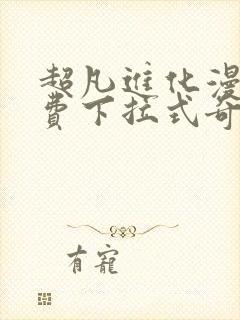 超凡进化漫
费下拉式奇
有宠